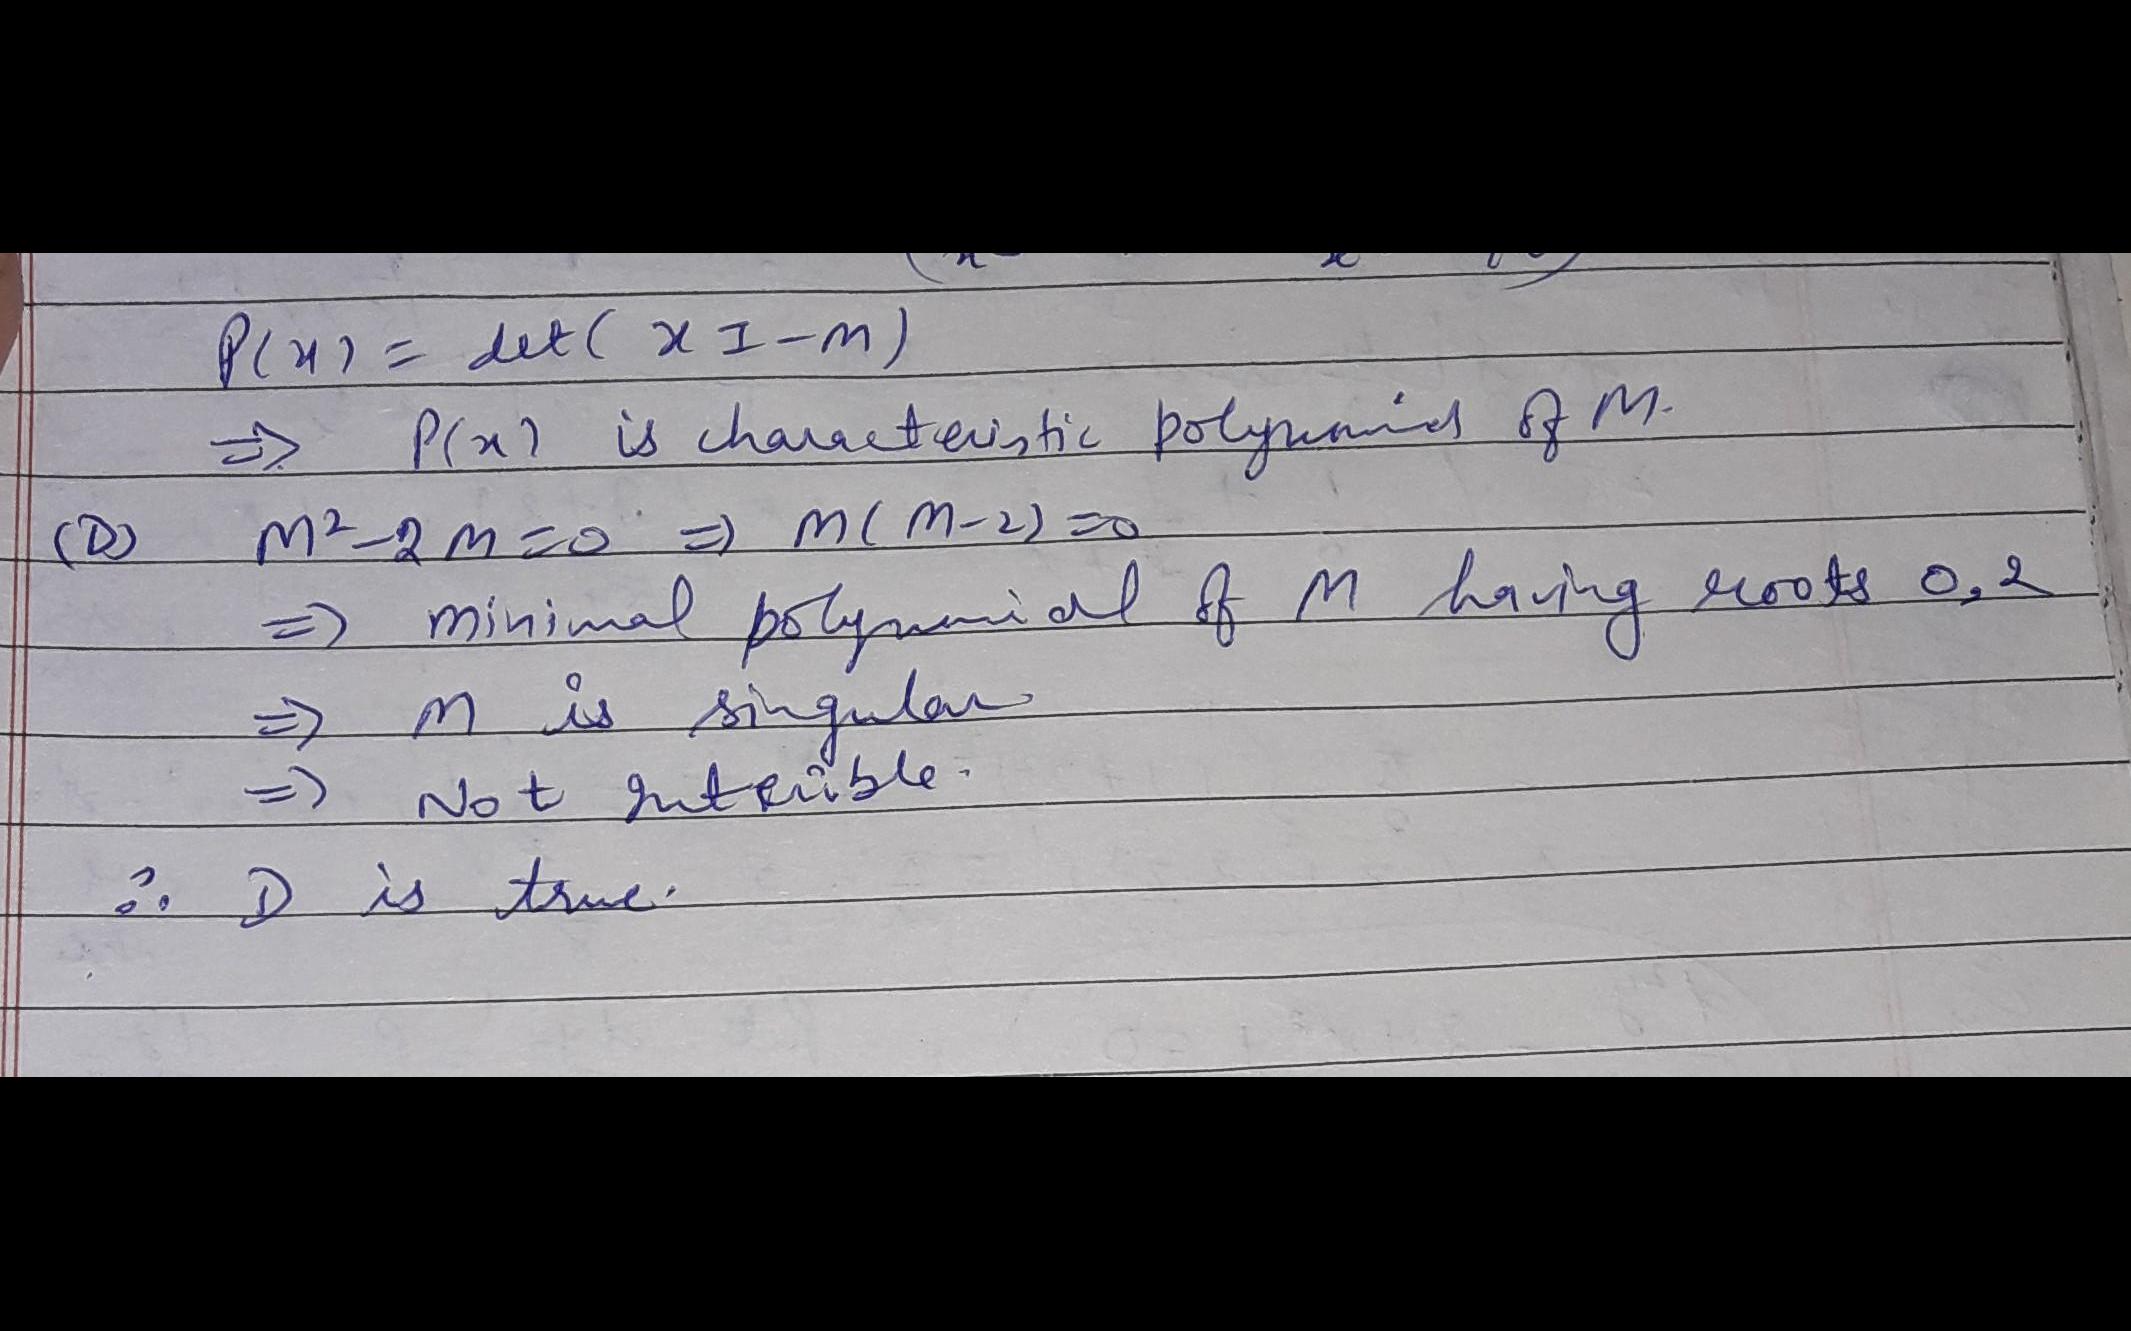 P(x) = det( x I - M )
⇒ P(x) is characteristic polynomial of M.
(D) M² - 2M = 0 ⇒ M( M - 2) = 0
⇒ minimal polynomial of M having roots 0, 2
⇒ M is singular
⇒ Not
∴ D is true.